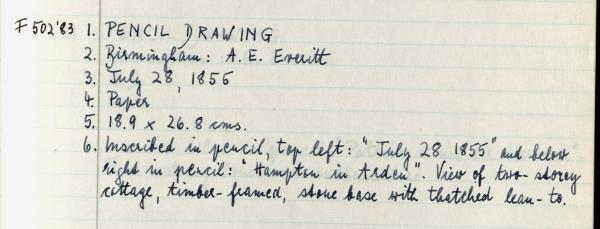 F502'83 1. PENCIL DRAWING
2. Birmingham: A. E. Everitt
3. July 28, 1855
4. Paper
5. 18.9 x 26.8 cms.
6. Inscribed in pencil, top left: "July 28 1855" and below
right in pencil: "Hampton in Arden". View of two-storey
cottage, timber-framed, stone base with thatched lean-to.